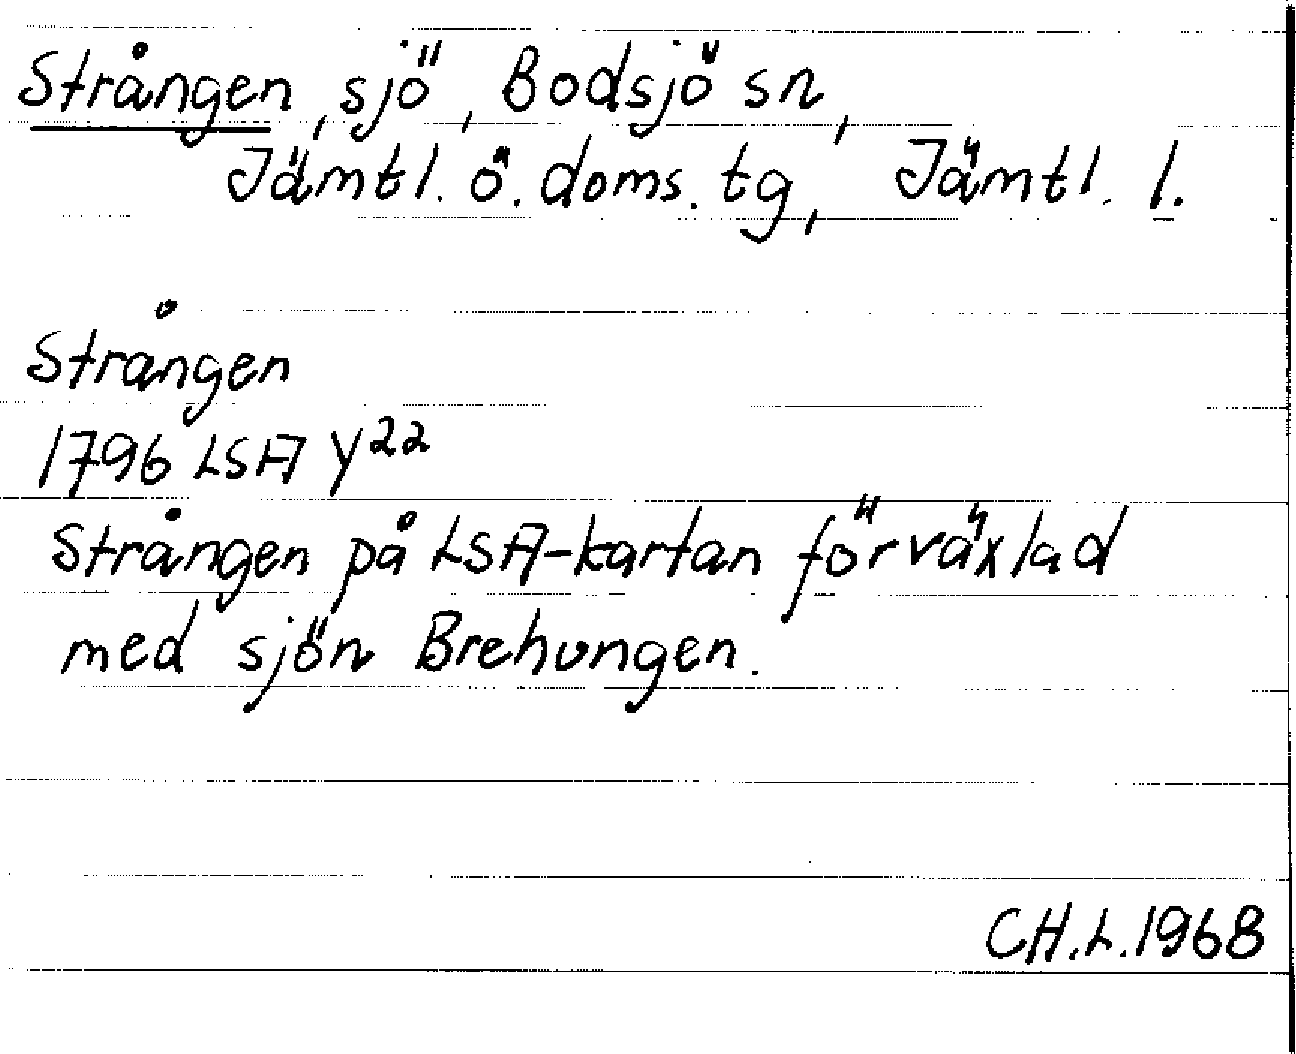 Strången, sjö, Bodsjö sn,
Jämtl. ö. doms. tg, Jämtl. l.
Strången
1796 LSA Y22
Strången på LSA-kartan förväxlad
med sjön Brehungen.
CH.L.1968